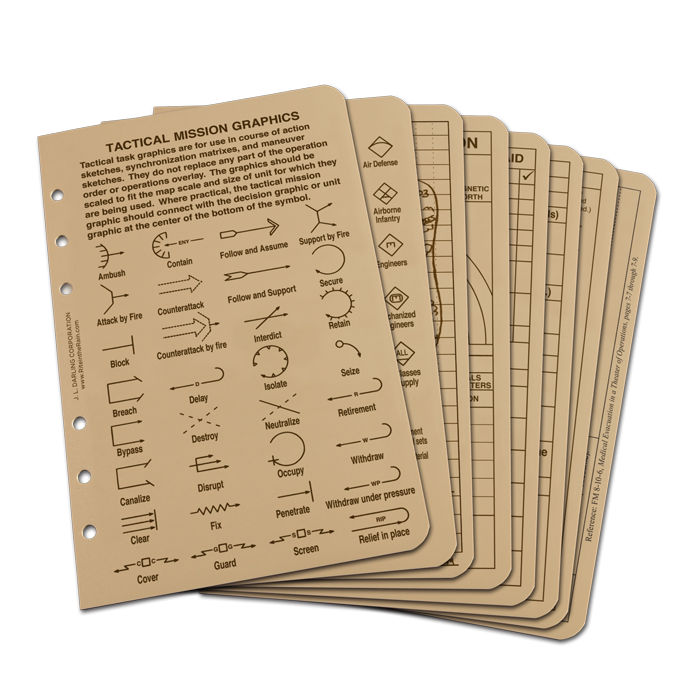 TACTICAL MISSION GRAPHICS
Tactical task graphics are for use in course of action
sketches, synchronization matrixes, and maneuver
sketches. They do not replace any part of the operation
order or operations overlay. The graphics should be
scaled to fit the map scale and size of unit for which they
are being used. Where practical, the tactical mission
graphic should connect with the decision graphic or unit
graphic at the center of the bottom of the symbol.
Ambush
ENY
Contain
Follow and Assume
Support by Fire
Attack by Fire
Counterattack
Follow and Support
Secure
Block
Counterattack by fire
Interdict
Retain
Breach
D
Delay
Isolate
Seize
Bypass
Destroy
Neutralize
R
Retirement
Canalize
Disrupt
Occupy
W
Withdraw
Clear
Fix
Penetrate
WP
Withdraw under pressure
C C
Cover
G G
Guard
S S
Screen
RIP
Relief in place
J. L. DARLING CORPORATION
www.RiteintheRain.com
Air Defense
Airborne
Infantry
E
ngineers
E
chanized
ngineers
ALL
lasses
upply
ment
sets
terial
ON
GNETIC
ORTH
ALS
TERS
ON
AID
Reference: FM 8-10-6, Medical Evacuation in a Theater of Operations, pages 7-7 through 7-9.